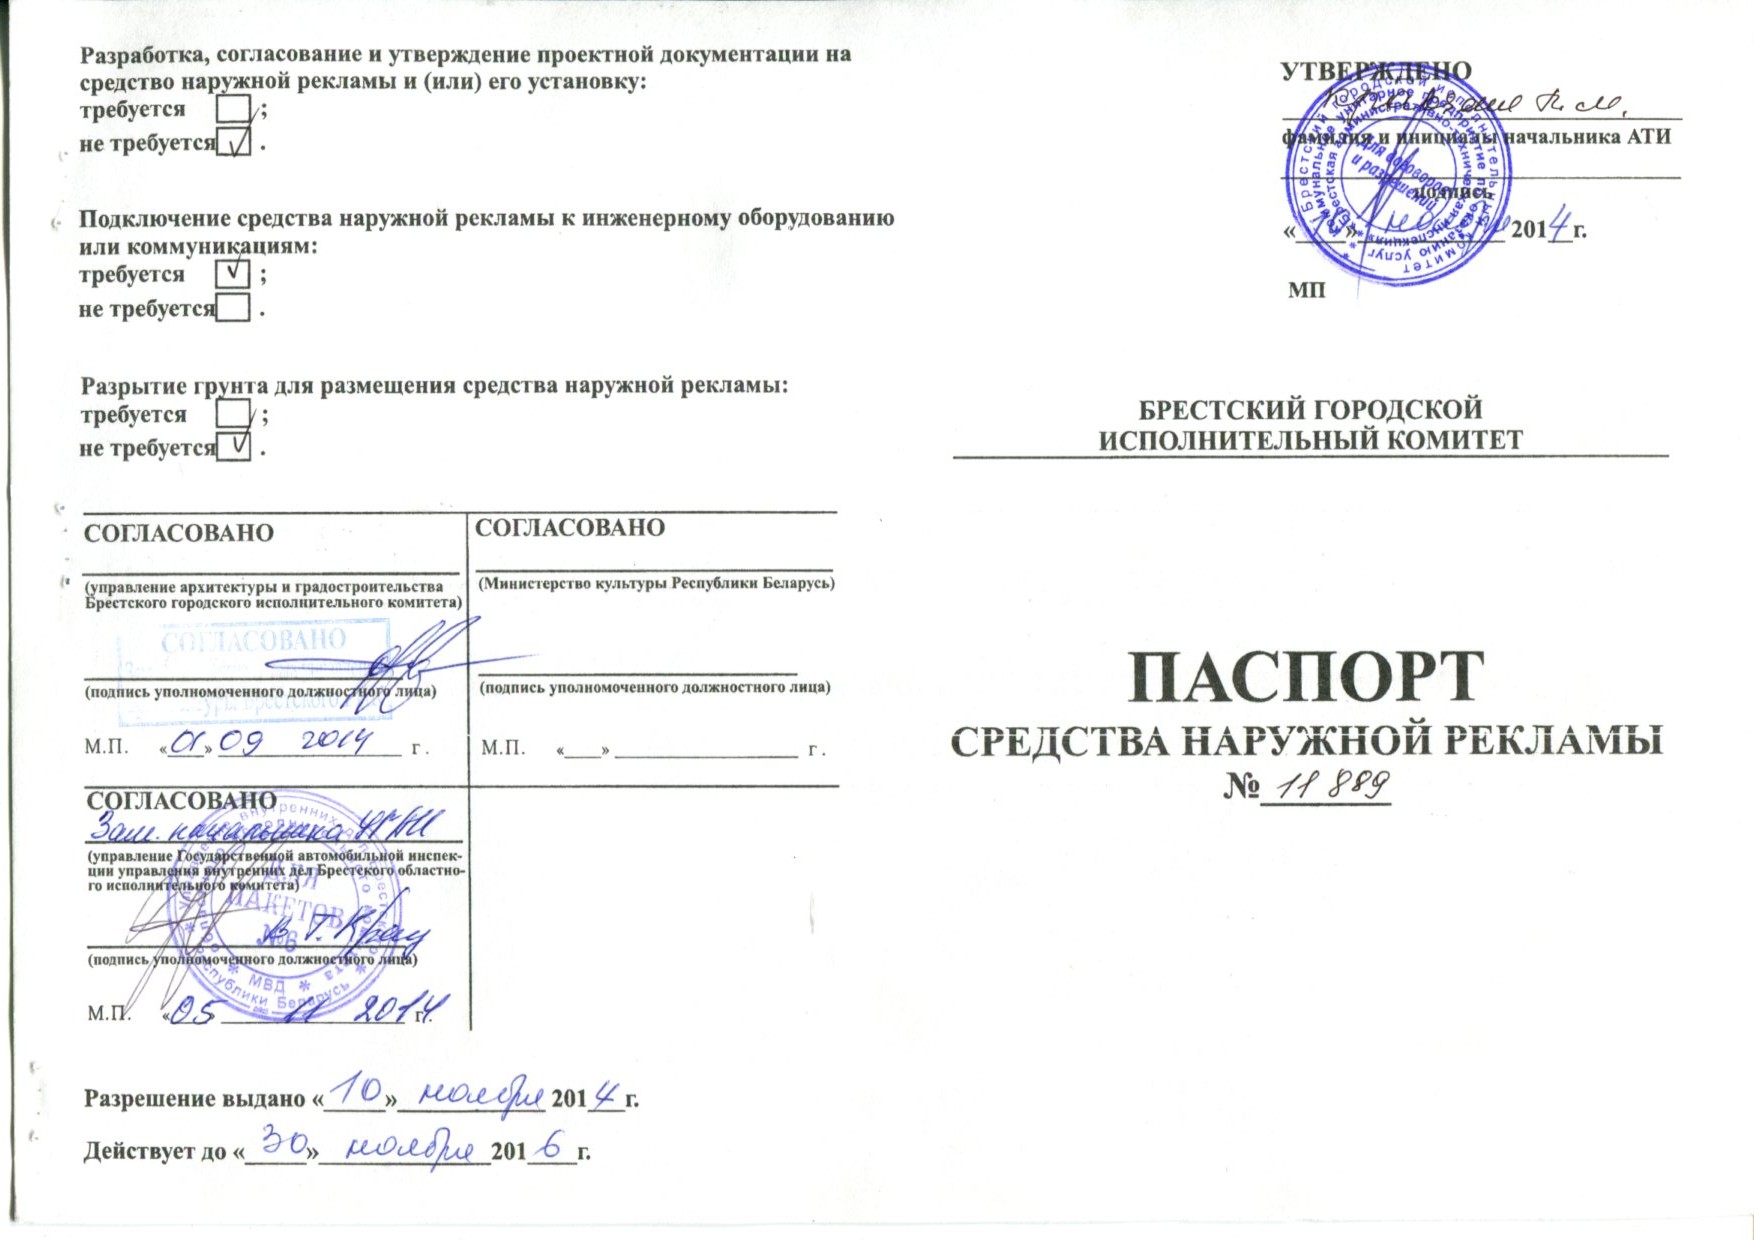 Разработка, согласование и утверждение проектной документации на
средство наружной рекламы и (или) его установку:
требуется ;
не требуется .
Подключение средства наружной рекламы к инженерному оборудованию
или коммуникациям:
требуется ;
не требуется .
Разрытие грунта для размещения средства наружной рекламы:
требуется ;
не требуется .
СОГЛАСОВАНО
(управление архитектуры и градостроительства
Брестского городского исполнительного комитета)
СОГЛАСОВАНО
(подпись уполномоченного должностного лица)
М.П. «01» 09 2014 г.
СОГЛАСОВАНО
(Министерство культуры Республики Беларусь)
(подпись уполномоченного должностного лица)
М.П. «___» ____________ г.
СОГЛАСОВАНО
Зам. начальника УГАИ
(управление Государственной автомобильной инспек-
ции управления внутренних дел Брестского областно-
го исполнительного комитета)
ДЛЯ
МАКЕТОВ
№6
МВД
Республики Беларусь
(подпись уполномоченного должностного лица)
М.П. «05 11 2014 г.
Разрешение выдано «10» ноября 2014 г.
Действует до «30» ноября 2016 г.
УТВЕРЖДЕНО
фамилия и инициалы начальника АТИ
подпись
Брестский городской исполнительный комитет
Коммунальное унитарное предприятие по оказанию услуг
Брестская административно-техническая инспекция
Для договоров
и разрешений
2014 г.
МП
БРЕСТСКИЙ ГОРОДСКОЙ
ИСПОЛНИТЕЛЬНЫЙ КОМИТЕТ
ПАСПОРТ
СРЕДСТВА НАРУЖНОЙ РЕКЛАМЫ
№ 11 889